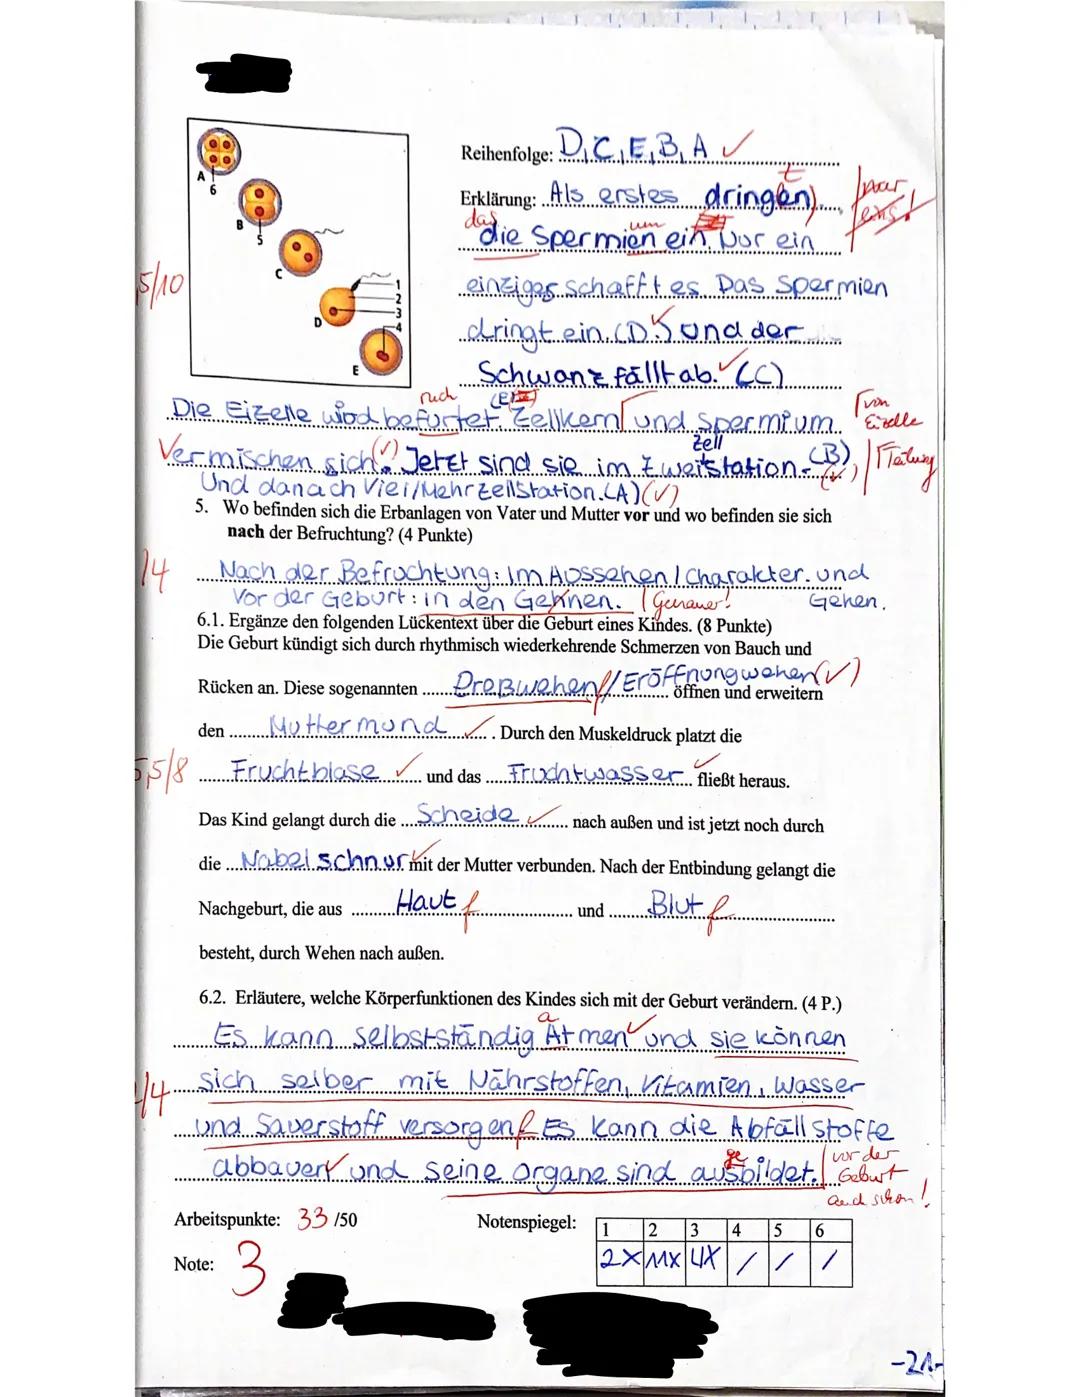 Reihenfolge: D, C, E, B, A ✓
A
6
B
5
C
1
2
3
4
D
E
t
Erklärung: Als erstes dringen) paar
das um fehlt!
die Spermien ein. Nur ein
5/10 einziges schafft es. Das Spermien
dringt ein. (D.)✓ und der
Schwanz fällt ab.✓ (C)
ruch (E)
Die Eizelle wird befurtet. Zellkern und Spermium. von Eizelle
Zell
Vermischen sich(✓). Jetzt sind sie im Zweistation. (B) (✓) Teilung
Und danach Viel/Mehrzellstation. (A) (✓)
5. Wo befinden sich die Erbanlagen von Vater und Mutter vor und wo befinden sie sich
nach der Befruchtung? (4 Punkte)
/4 Nach der Befruchtung: Im Aussehen / Charakter. und
Vor der Geburt: in den Gehnen. Genauer! Gehen.
6.1. Ergänze den folgenden Lückentext über die Geburt eines Kindes. (8 Punkte)
Die Geburt kündigt sich durch rhythmisch wiederkehrende Schmerzen von Bauch und
Rücken an. Diese sogenannten Preßwehen f/Eröffnungwehen (✓) öffnen und erweitern
den Muttermund ✓. Durch den Muskeldruck platzt die
5,5/8 Fruchtblase ✓ und das Fruchtwasser ✓ fließt heraus.
Das Kind gelangt durch die Scheide ✓ nach außen und ist jetzt noch durch
die Nabelschnur ✓ mit der Mutter verbunden. Nach der Entbindung gelangt die
Nachgeburt, die aus Haut f und Blut f
besteht, durch Wehen nach außen.
6.2. Erläutere, welche Körperfunktionen des Kindes sich mit der Geburt verändern. (4 P.)
a
Es kann selbstständig Atmen ✓ und sie können
/4 sich selber mit Nährstoffen, Vitamien, Wasser
und Sauerstoff versorgen f Es kann die Abfällstoffe
abbauen ✓ und seine organe sind ausbildet. ge vor der Geburt auch schon!
Arbeitspunkte: 33 /50
Notenspiegel:
1 2 3 4 5 6
2X 11X 4X / / /
Note: 3
-21-